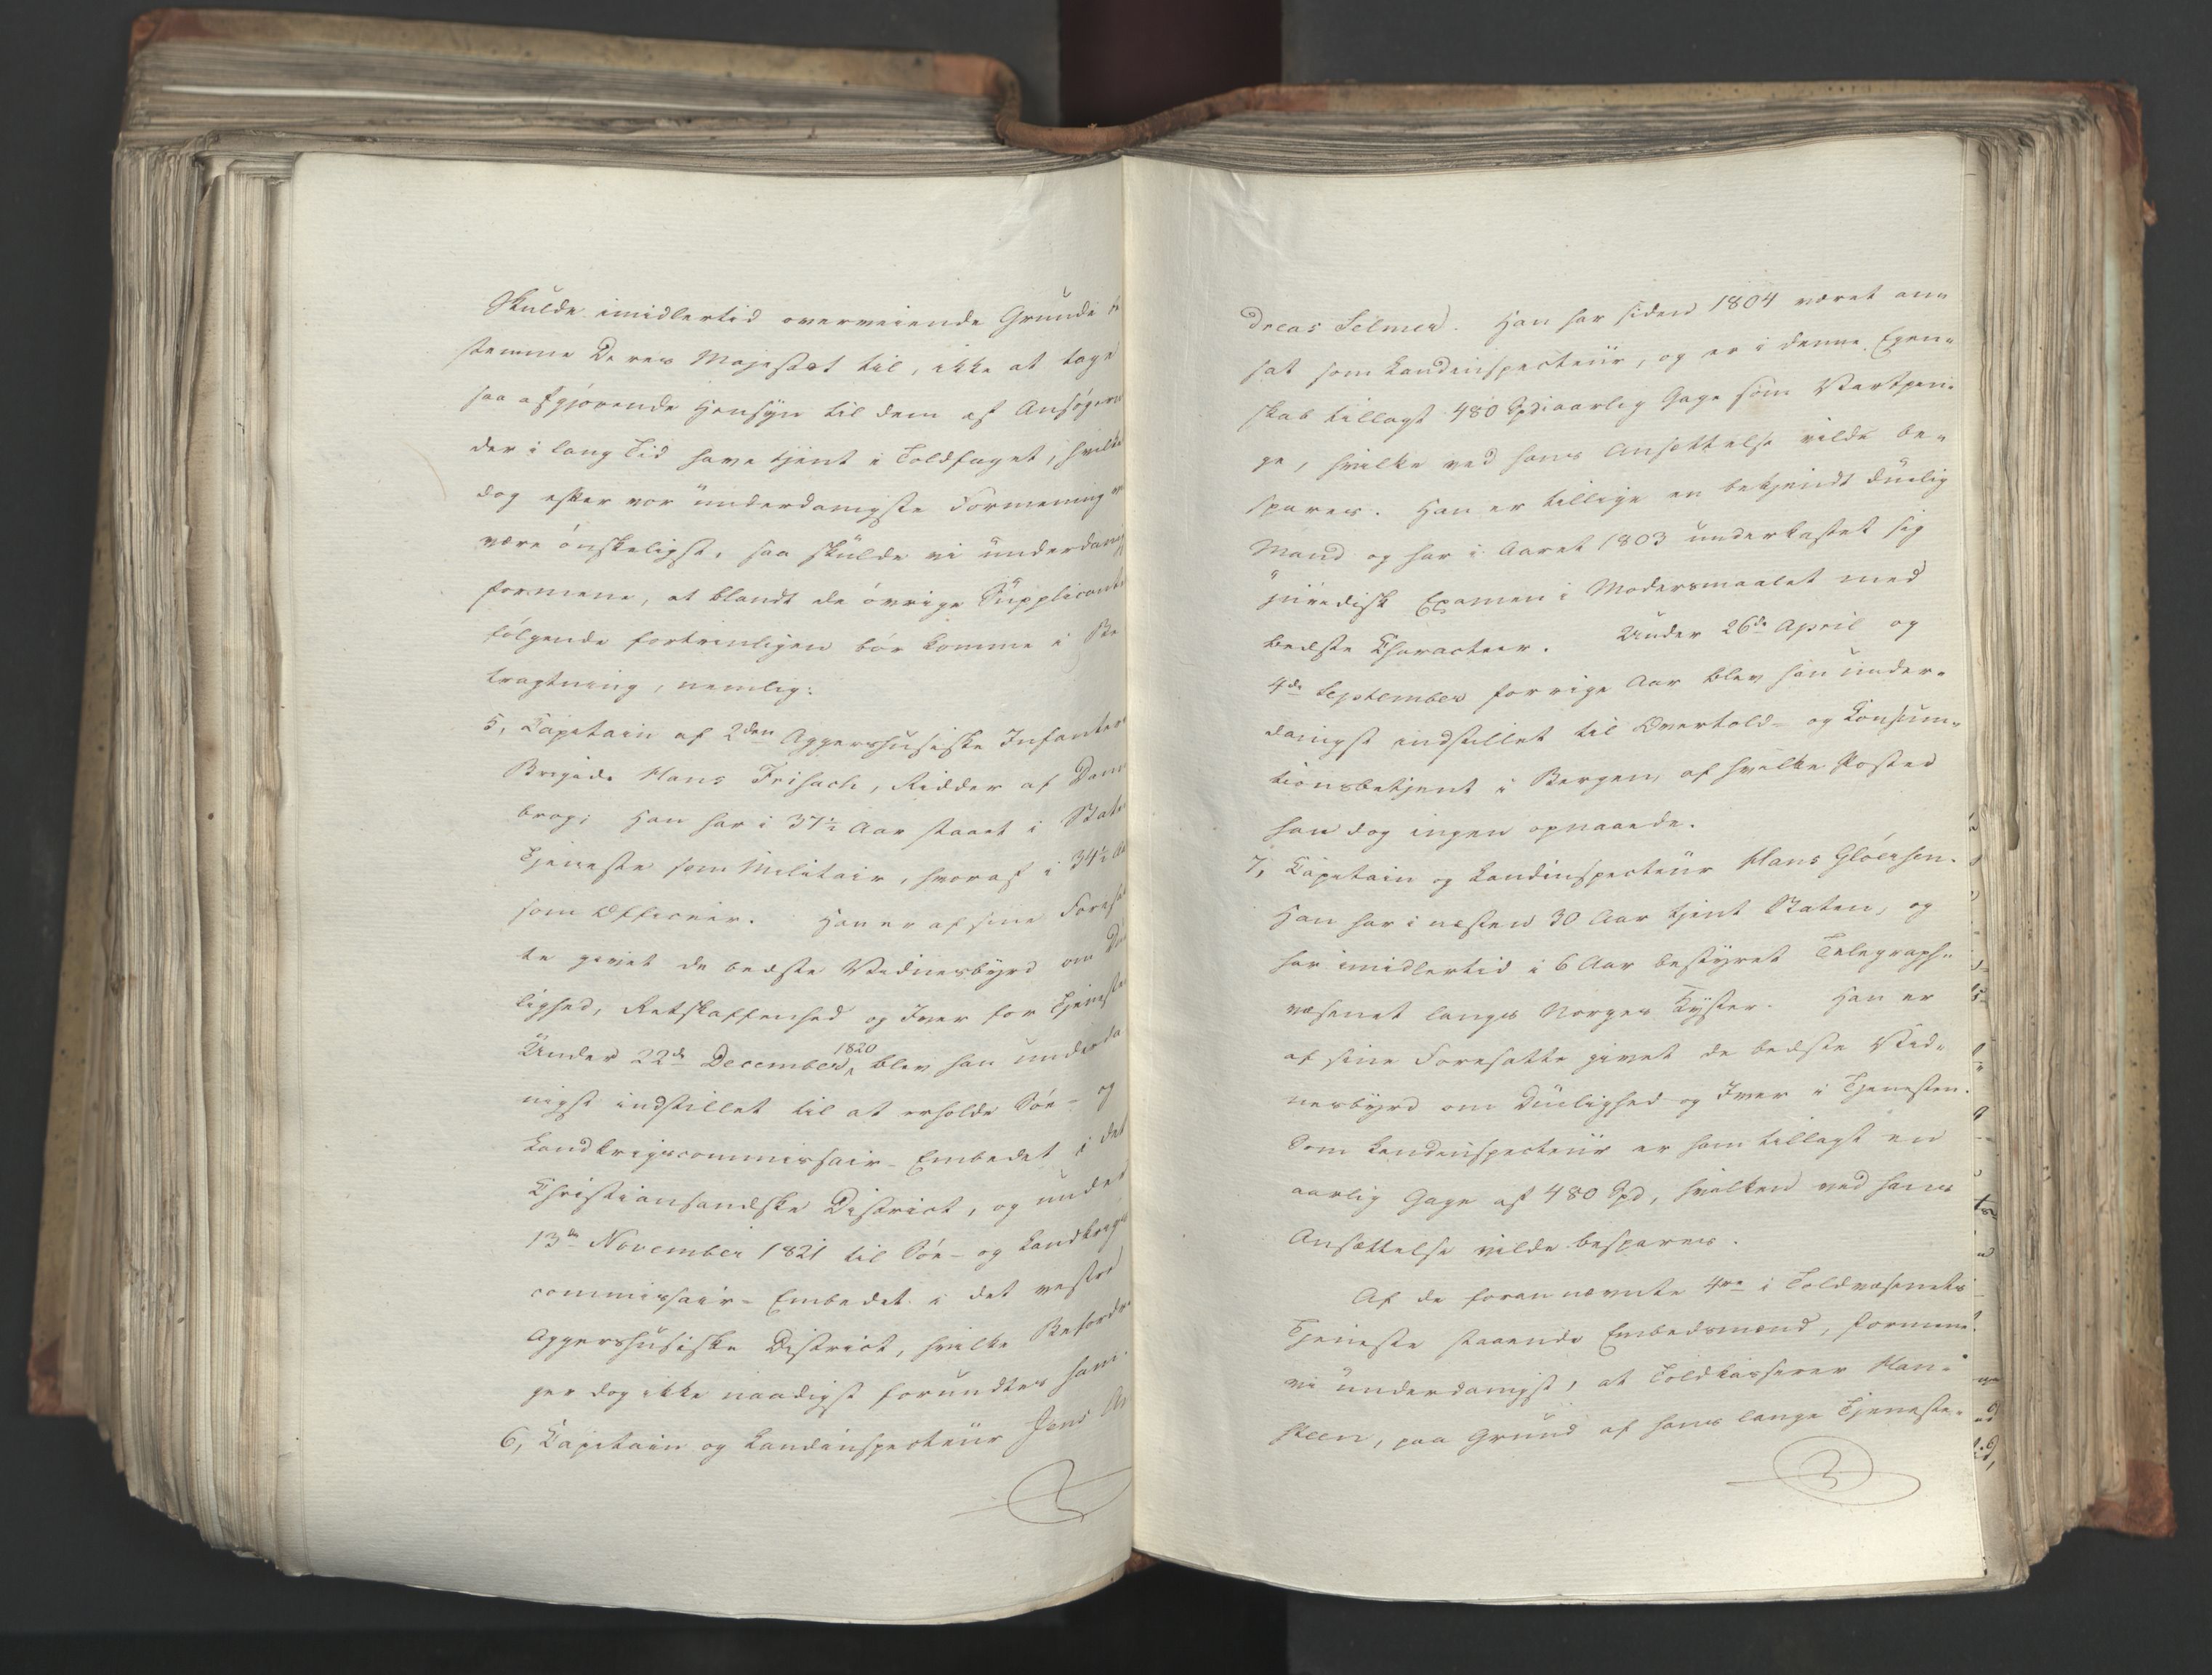 Skulde imidlertid overveiende Grunde be
stemme Deres Majestæt til, ikke at tage
saa afgjørende Hensyn til dem af Ansøgerne
der i lang Tid have tjent i Toldfaget, hvilket
dog efter vor underdanigste Formening
være ønskeligst, saa skulde vi underdanigst
formene, at blandt de øvrige Supplicanter
følgende fortrinligen bør komme i Be
tragtning, nemlig:
5, Capitain af 2den Aggershusiske Infanterie
Brigade Hans Frisach, Ridder af Danne
brog; Han har i 37½ Aar staaet i Statens
Tjeneste som Militair, hvoraf i 34½ Aar
som Officeer. Han er af sine Foresat
te givet de bedste Vidnesbyrd om Due
lighed, Retskaffenhed og Iver for Tjenesten
Under 22de December 1820 blev han underda
nigst indstillet til at erholde Søe- og
Landkrigscommissair-Embedet i det
Christiansandske District, og under
13de November 1821 til Søe- og Landkrigs
commissair-Embedet i det vestre
Aggershusiske District, hvilke Befordrin
ger dog ikke naadigst forundtes ham.
6, Capitain og Landinspecteur Jens An
dreas Selmer. Han har siden 1804 været an-
sat som Landinspecteur, og er i denne Egen-
skab tillagt 480 Spd aarlig Gage som Vartpen-
ge, hvilke ved hans Ansættelse vilde be-
spares. Han er tillige en bekjendt duelig
Mand og har i Aaret 1803 underkastet sig
juridisk Examen i Modersmaalet med
bedste Characteer. Under 26de April og
4de September forrige Aar blev han under-
danigst indstillet til Overtold- og Consum-
tionsbetjent i Bergen, af hvilke Poster
han dog ingen opnaaede.
7, Capitain og Landinspecteur Hans Glöersen.
Han har i næsten 30 Aar tjent Staten, og
har imidlertid i 6 Aar bestyret Telegraph-
væsenet langs Norges Kyster. Han er
af sine Foresatte givet de bedste Vid-
nesbyrd om Duelighed og Iver i Tjenesten.
Som Landinspecteur er ham tillagt en
aarlig Gage af 480 Spd, hvilken ved hans
Ansættelse vilde bespares.
Af de forannævnte 4re i Toldvæsenets
Tjeneste staaende Embedsmænd, formene
vi underdanigst, at Toldkasserer Han-
steen, paa Grund af hans lange Tjeneste-